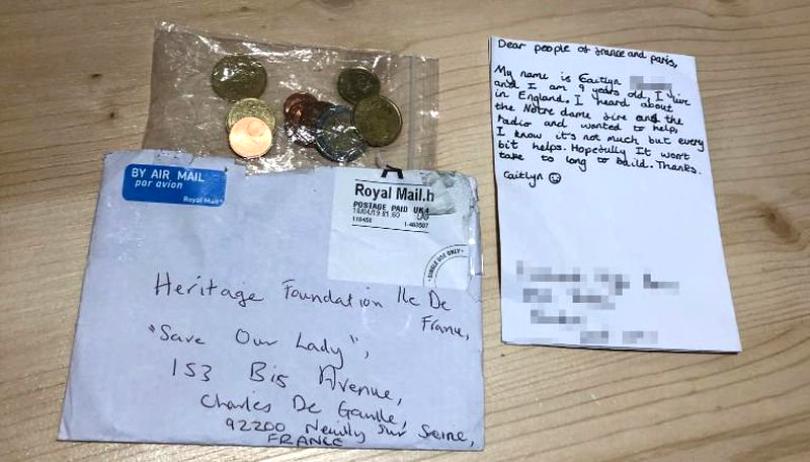 BY AIR MAIL
par avion
Royal Mail
Royal Mail.h
POSTAGE PAID UK
SINGLE USE ONLY
Heritage Foundation Ile De
France,
"Save Our Lady",
153 Bis Avenue,
Charles De Gaulle,
92200 Neuilly sur Seine,
FRANCE
Dear people of france and paris,
My name is Caitlyn
and I am 9 years old, I live
in England. I heard about
the Notre dame fire and the
radio and wanted to help,
I know it's not much but every
bit helps. Hopefully It won't
take to long to build. Thanks.
Caitlyn